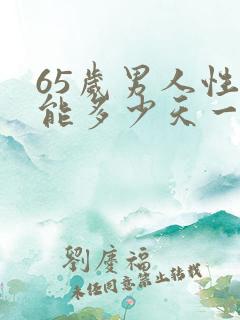 65岁男人性
能多少天一
劉慶福
未经同意禁止转载